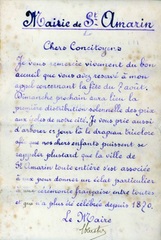 Mairie de St Amarin
Chers Concitoyens
Je vous remercie vivement du bon
accueil que vous avez réservé à mon
appel concernant la fête du 14 août.
prochain aura lieu la
première distribution solennelle des prix
aux de notre cité. Je vous prie aussi
d'arborer ce jour là le drapeau tricolore
afin que nos chers enfants puissent se
rappeler plus tard que la ville de
St Amarin toute entière s'est associée
à eux pour donner un éclat particulier
à une cérémonie française entre toutes
et qui n'a plus été célébrée depuis 1870.
Le Maire